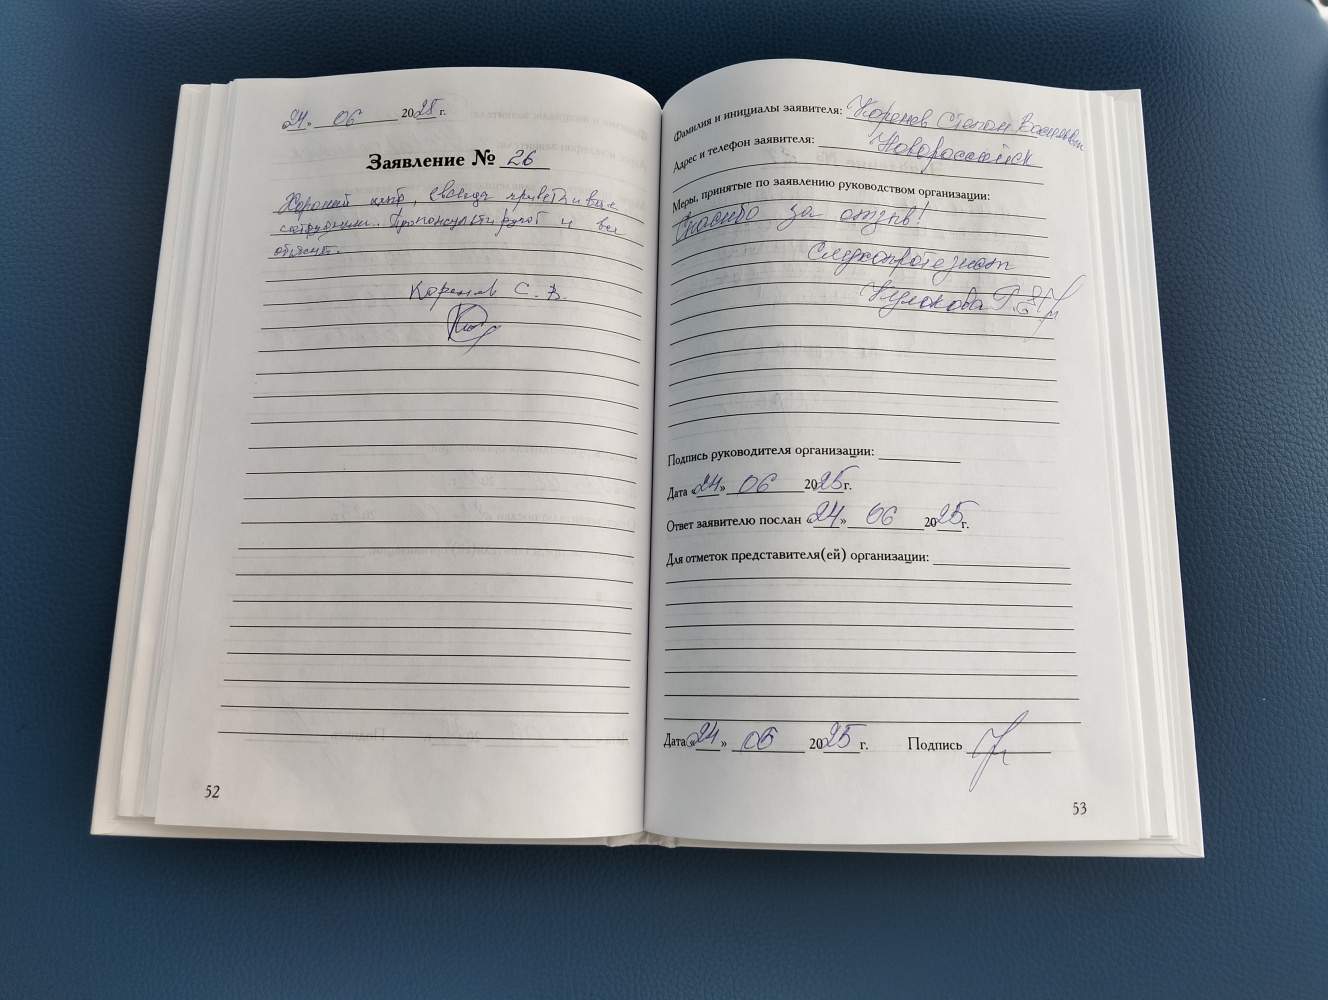 24. 06 2025 г.
Заявление № 26
Хороший центр, всегда приветливые
сотрудники. Проконсультируют и все
объяснят.
Коренев С. В.
Фамилия и инициалы заявителя: Коренев Степан
Адрес и телефон заявителя: Новороссийск
Меры, принятые по заявлению руководством организации:
Спасибо за отзыв!
Слухопротезист
Кулакова
Подпись руководителя организации:
Дата «24» 06 2025 г.
Ответ заявителю послан «24» 06 2025 г.
Для отметок представителя(ей) организации:
Дата «24» 06 2025 г. Подпись
52
53